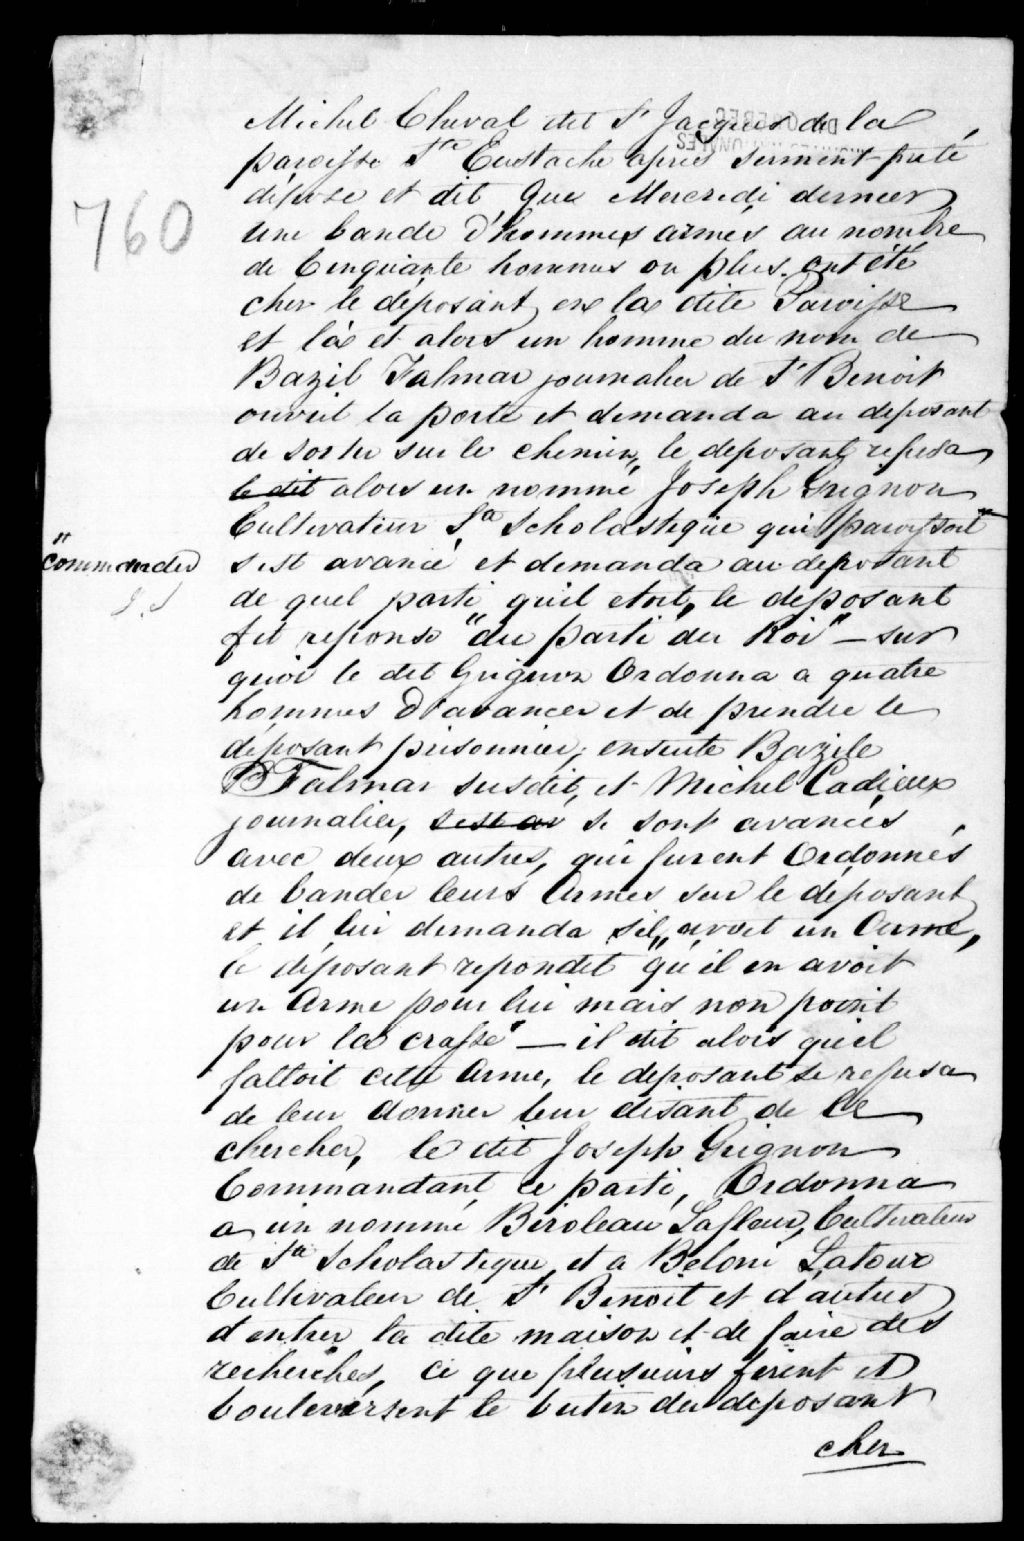 Michel Cheval dit St Jacques de la
paroisse St Eustache après serment prêté
dépose et dit Que Mercredi dernier
une bande d'hommes armés au nombre
de Cinquante hommes ou plus ont été
chez le déposant en la dite Paroisse
et là et alors un homme du nom de
Bazil Talmar journalier de St Benoit
ouvrit la porte et demanda au deposant
de sortir sur le chemin, le deposant refusa
le dit alors un nommé Joseph Grignon
Cultivateur Ste Scholastique qui paroissoit "
" commander
s'est avancé et demanda au deposant
de quel parti qu'il etoit, le déposant
fit reponse "du parti du Roi" — sur
quoi le dit Grignon Ordonna a quatre
hommes d'avancer et de prendre le
déposant prisonnier, ensuite Bazile
Talmar susdit, et Michel Cadieux
journalier, s'est av se sont avancés
avec deux autres, qui furent Ordonnés
de bander leurs Armes sur le déposant
et il lui demanda s'il avoit un Arme,
le déposant repondit "qu'il en avoit
un Arme pour lui mais non point
pour la crasse" — il dit alors qu'il
falloit cette Arme, le deposant se refusa
de leur donner leur disant de le
chercher, le dit Joseph Grignon
Commandant ce parti, Ordonna
a un nommé Biroleau Lafleur, Cultivateur
de Ste Scholastique et a Beloni Latour
Cultivateur de St Benoit et d'autres
d'entrer la dite maison et de faire des
recherches, ce que plusieurs firent et
bouleversent le butin du deposant
chez
760